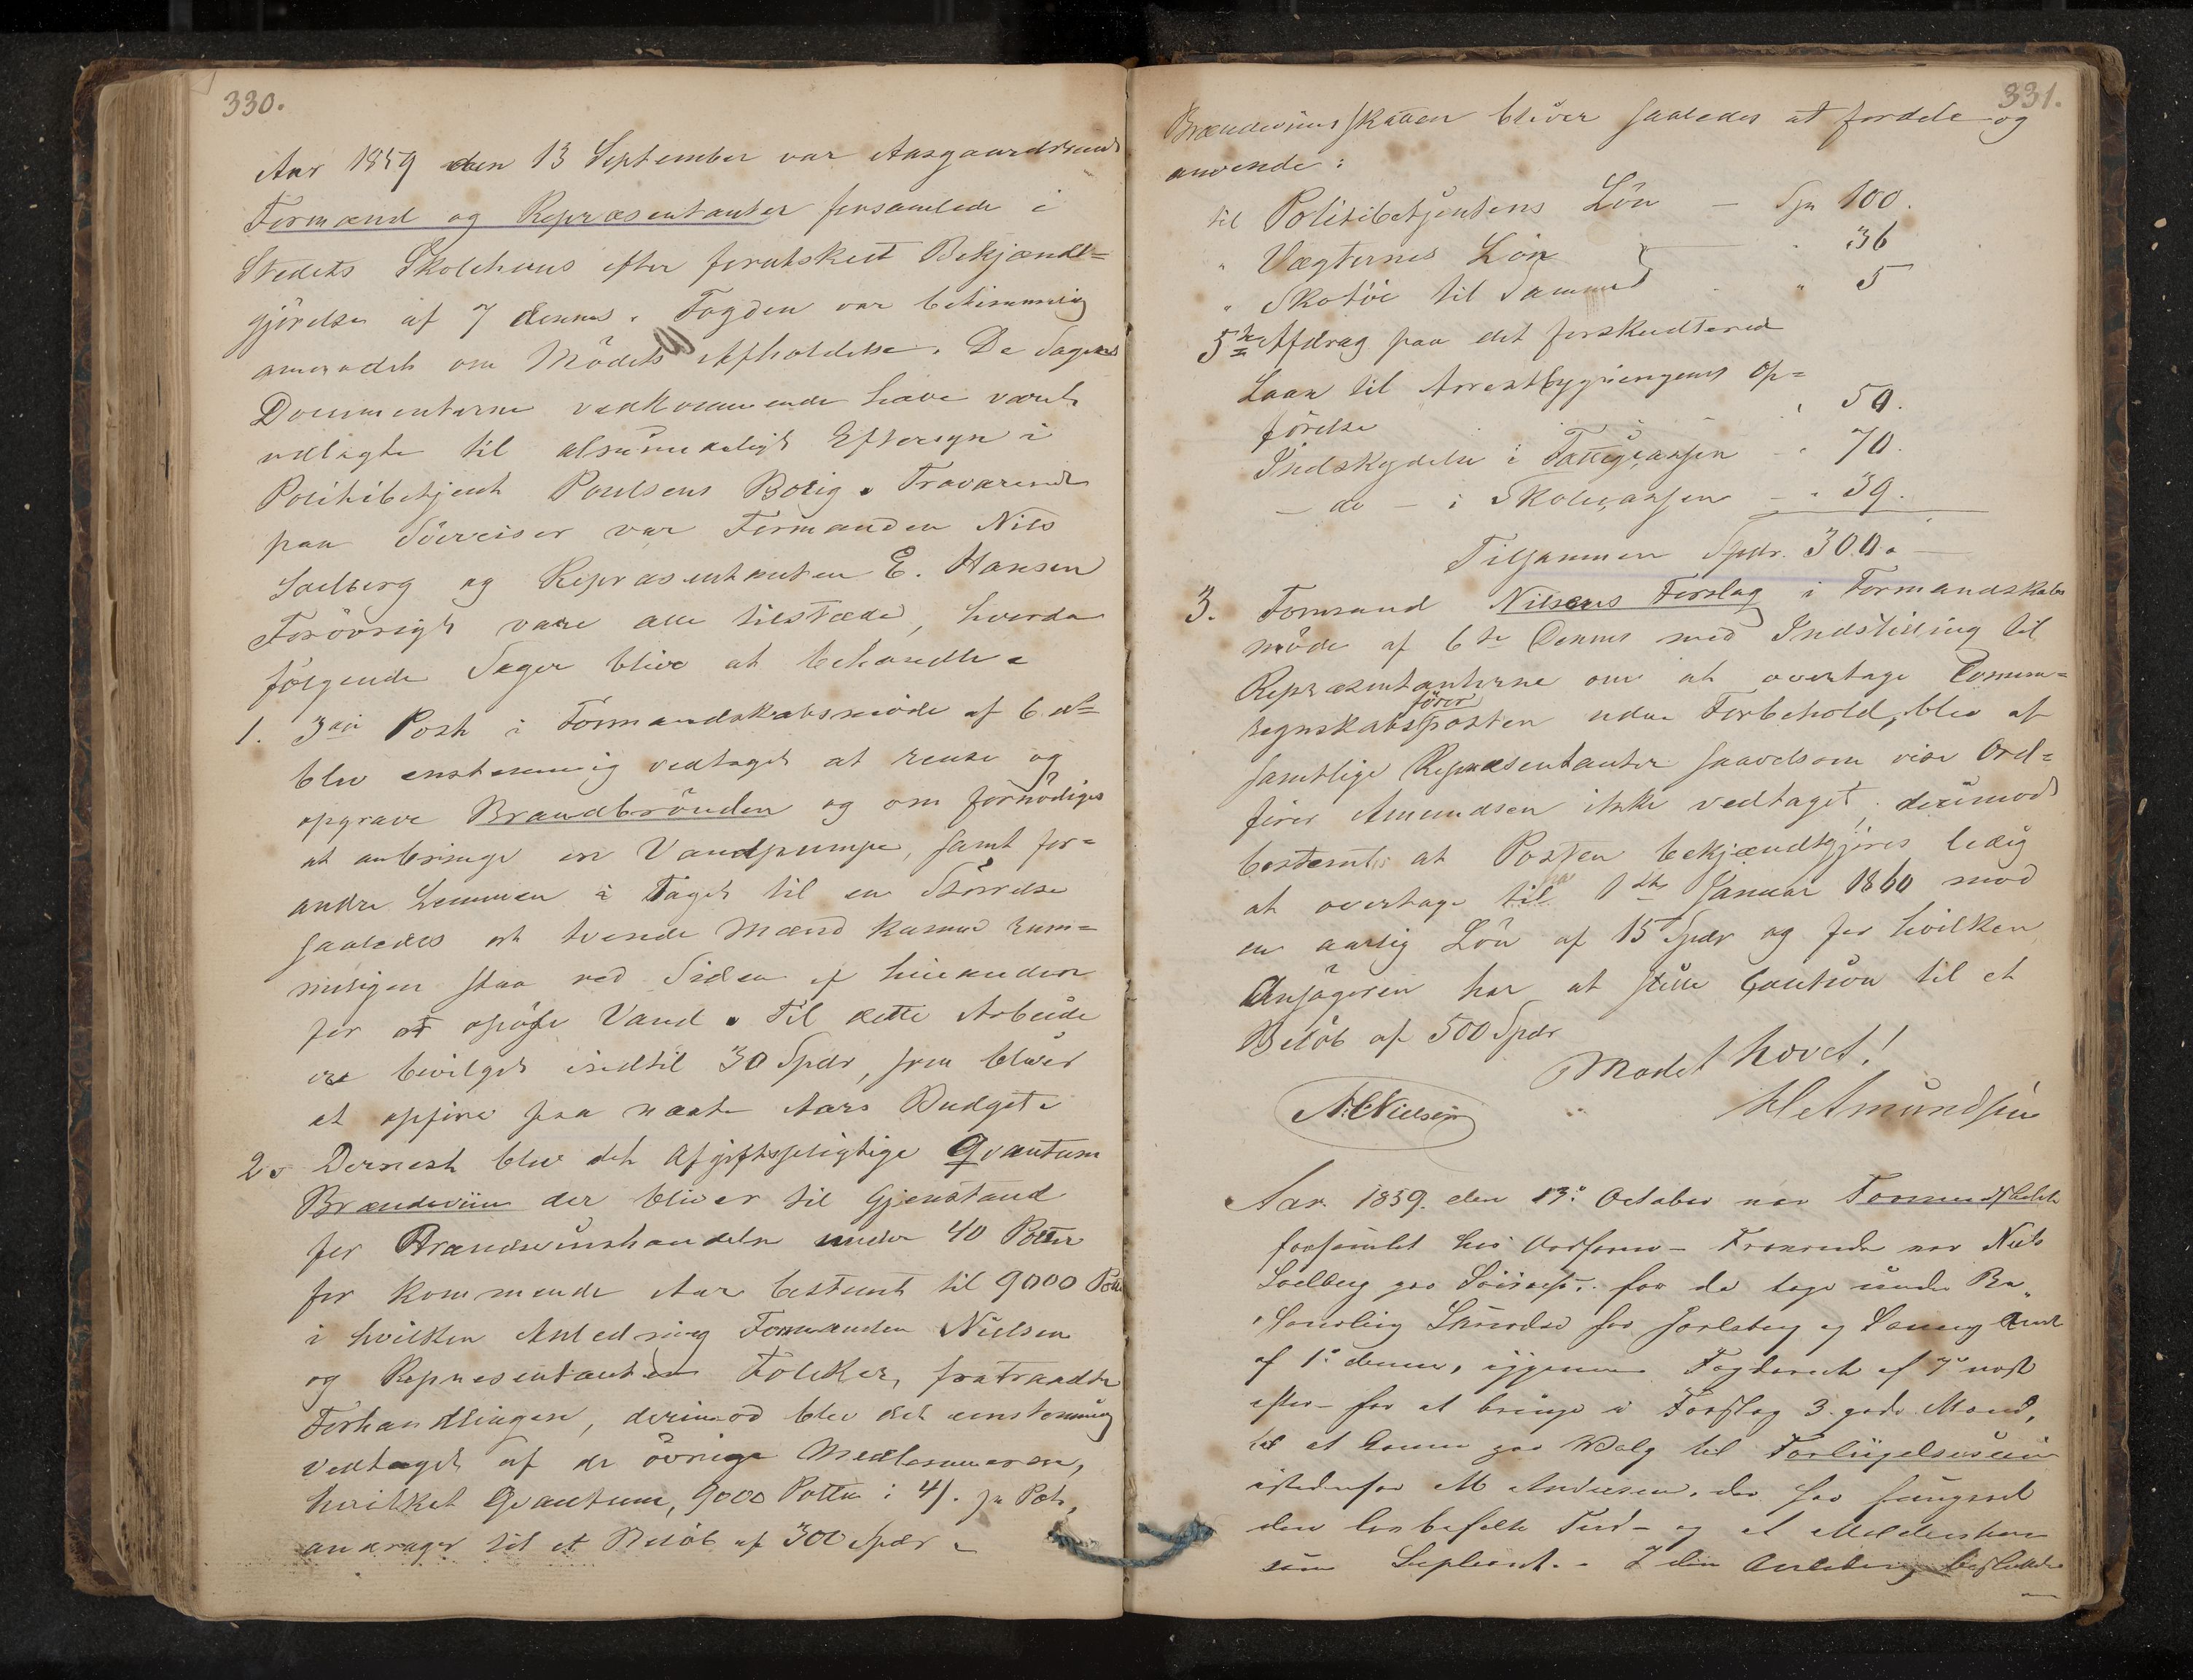 330.
Aar 1859 den 13 September var Aasgaardstrands
Formænd og Repræsentanter forsamlede i
Stedets Skolehuus efter forutskeet Bekjændt=
gjörelse af 7 dennes. Fogden var betimmelig
anmodet om Mödets Afholdelse. De Sagens
Documenterne vedkommende have været
udlagte til almindeligt Eftersyn i
Politibetjent Poulsens Bolig. Fraværende
paa Söereiser var Formanden Nils
Solberg og Repræsentanten E. Hansen
Forövrigt vare alle tilstæde, hvorda
fölgende Sager blive at behandle.
1. 3die Post i Formandskabsmöde af 6 ds
blev enstemmig vedtaget at rense og
opgrave Brandbrönden og om fornödiges
at anbringe en Vandpumpe, samt for=
andre Lemmen i Taget til en Störrelse
saaledes at tvende Mænd kunne rum=
meligen staa ved Siden af hinanden
for at opöse Vand. Til dette Arbeide
ere bevilget indtil 30 Spdr, som bliver
at opföre paa næste Aars Budget.
2. Dernest blev det Afgiftspligtige Qvantum
Brændeviin der bliver til Gjenstand
for Brændeviinshandelen under 40 Potter
for kommende Aar bestemt til 9000 Potter
i hvilken Anledning Formanden Nielsen
og Representanten Folcker, fratraadte
Forhandlingen, derimod blev det eenstemmig
vedtaget af de övrige Medlemmerne,
hvilket Qvantum, 9000 Potter i 4 s. pr Pot,
andrager til et Belöb af 300 Spdr.
331.
Brændeviinsskatten bliver saaledes at fordele og
anvende:
til Politibetjentens Lön – Spd 100.
" Vægternes Lön " 36
" Skotöi til Samme " 5
5te Afdrag paa det forskudterede
Laan til Arrestbygningens Op=
förelse " 50.
Indskydelse i Fattigcassen – " 70.
– do – i Skolecassen – " 39.
Tilsammen Spdr. 300.
3. Formand Nilsens Forslag i Formandskabs
möde af 6te Dennes med Indstilling til
Repræsentanterne om at overtage Comm=
regnskabsförerposten uden Forbehold, blev af
samtlige Repræsentanter saavelsom vise Ord=
förer Amundsen ikke vedtaget, derimod
bestemtes at Posten bekjændtgjöres ledig
at overtage til 1ste Januar 1860 mod
en aarlig Lön af 15 Spdr og for hvilken
Ansögeren har at stille Caution til et
Belöb af 500 Spdr
Mødet hævet!
N.C. Nielsen HAmundsen
Aar 1859. den 13de October var Formandskabet
forsamlet hos Ordføren – Fraværende var Niels
Solberg paa Söireise. for da tage under Be„
handling Skrivelse fra Jarlsberg og Laurvig Amt
af 1ste dennes, igjennem Fogderiet af 7de næst
efter – for at bringe i Forslag 3 gode Mænd,
til at komme paa Valg til Forligelsescom
istedenfor M Andersen, der har fungeret
den lovbefalte Tid – og et Meddelelse
som Supleant. – I den Anledning besluttedes